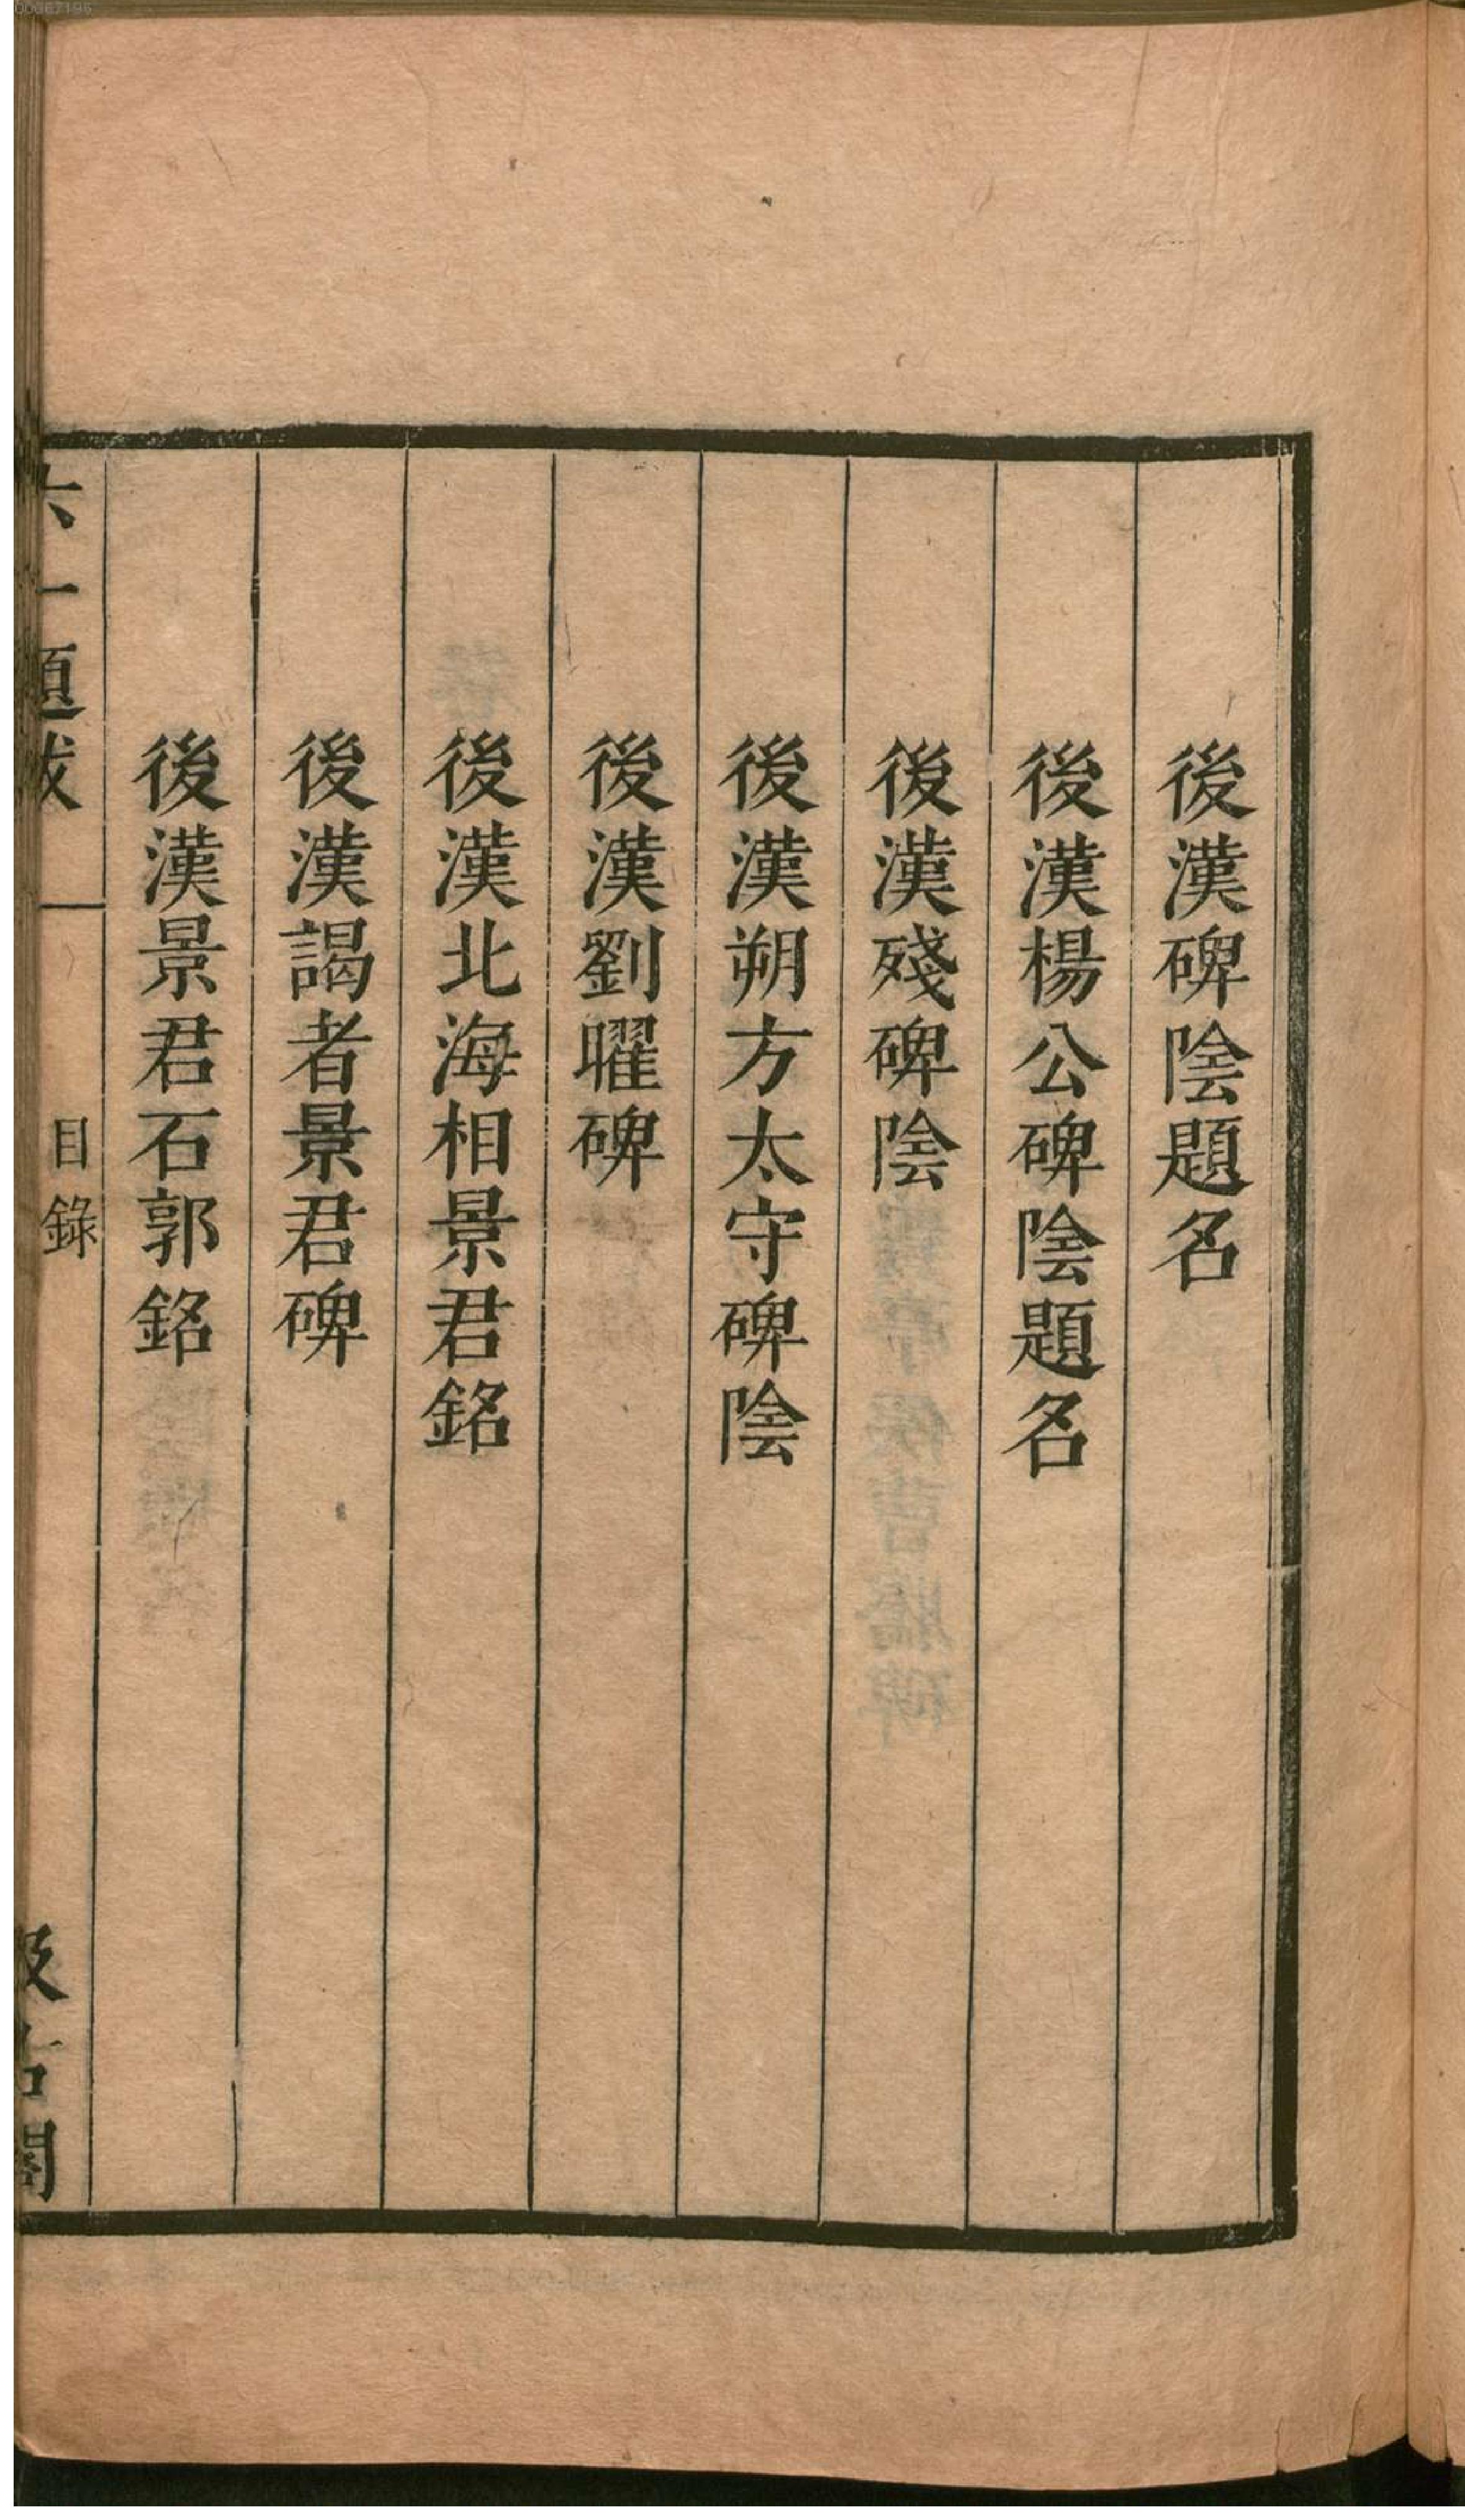 後漢碑陰題名
後漢楊公碑陰題名
後漢殘碑陰
後漢朔方太守碑陰
後漢劉曜碑
後漢北海相景君銘
後漢謁者景君碑
後漢景君石郭銘
六一題跋
目錄
汲古閣